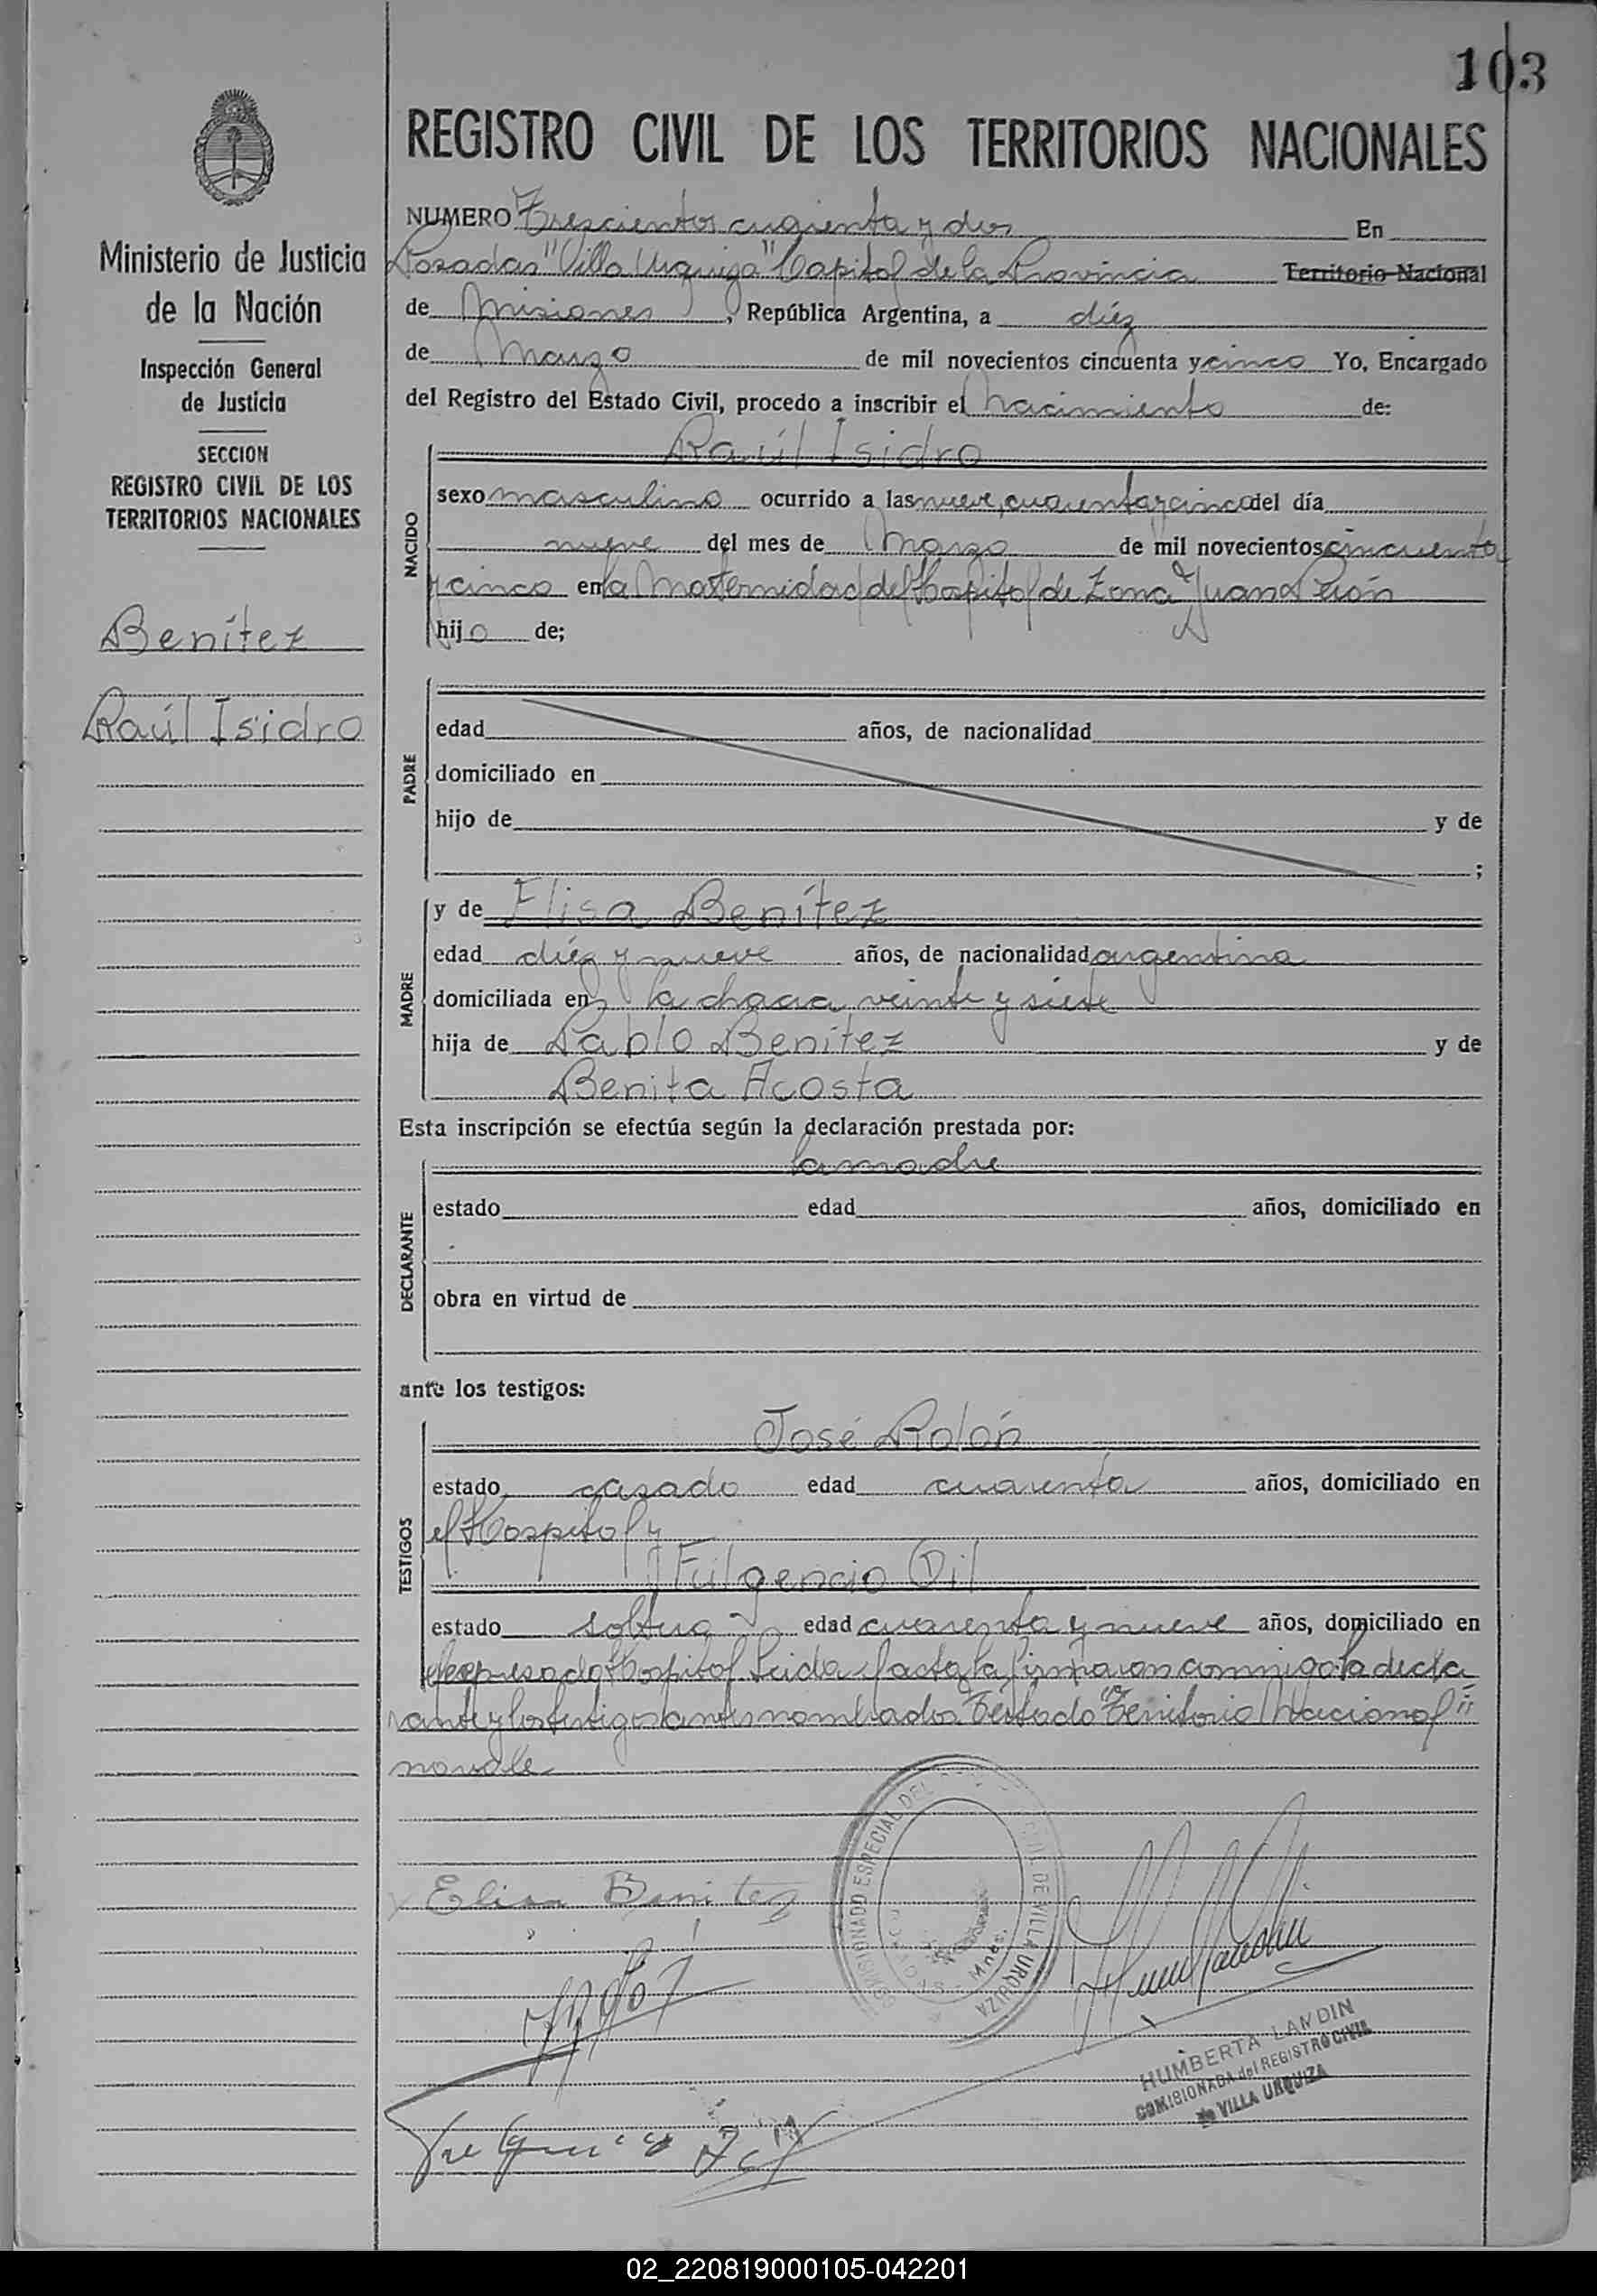 103
REGISTRO CIVIL DE LOS TERRITORIOS NACIONALES
Ministerio de Justicia
de la Nación
Inspección General
de Justicia
SECCION
REGISTRO CIVIL DE LOS
TERRITORIOS NACIONALES
Benítez
Raúl Isidro
NUMERO Trescientos cuarenta y dos En
Posadas "Villa Urquiza" Capital de la Provincia Territorio Nacional
de Misiones, República Argentina, a diéz
de Marzo de mil novecientos cincuenta y cinco Yo, Encargado
del Registro del Estado Civil, procedo a inscribir el nacimiento de:
NACIDO
Raúl Isidro
sexo masculino ocurrido a las nueve, cuarenta y cinco del día
nueve del mes de Marzo de mil novecientos cincuenta
y cinco en la Maternidad del Hospital de Zona "Juan Perón
hijo de;
PADRE
edad años, de nacionalidad
domiciliado en
hijo de y de
;
MADRE
y de Elisa Benítez
edad diéz y nueve años, de nacionalidad argentina
domiciliada en la chacra veinte y siete
hija de Pablo Benítez y de
Benita Acosta
Esta inscripción se efectúa según la declaración prestada por:
DECLARANTE
la madre
estado edad años, domiciliado en
obra en virtud de
ante los testigos:
TESTIGOS
José Rolón
estado casado edad cuarenta años, domiciliado en
el Hospital y
Fulgencio Gil
estado soltero edad cuarenta y nueve años, domiciliado en
el expresado Hospital. Leida el acta, la firmaron conmigo la decla
rante y los testigos antes nombrados. Testado "Territorio Nacional"
no vale
Elisa Benitez
COMISIONADO ESPECIAL DEL CIVIL DE VILLA URQUIZA
Mnes.
HUMBERTA LANDIN
COMISIONADA del REGISTRO CIVIL
de VILLA URQUIZA
02_220819000105-042201